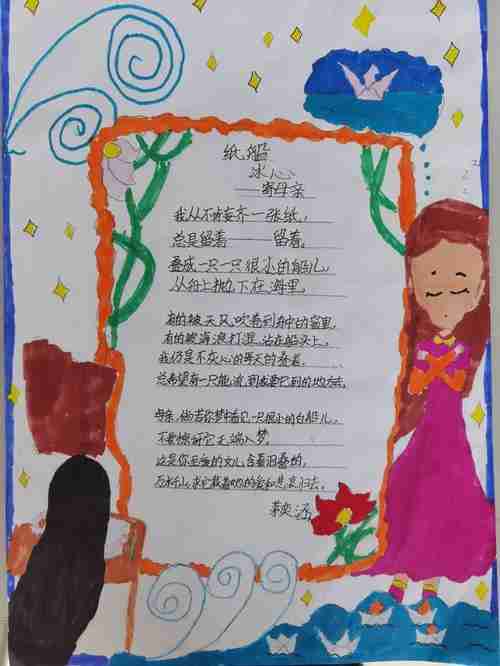 纸船
冰心
——寄母亲
我从不肯妄弃一张纸,
总是留着——留着,
叠成一只一只很小的船儿,
从舟上抛下在海里。
有的被天风吹卷到舟中的窗里,
有的被海浪打湿,沾在船头上。
我仍是不灰心的每天的叠着,
总希望有一只能流到我要它到的地方去。
母亲,倘若你梦中看见一只很小的白船儿,
不要惊讶它无端入梦。
这是你至爱的女儿含着泪叠的,
万水千山,求它载着她的爱和悲哀归去。